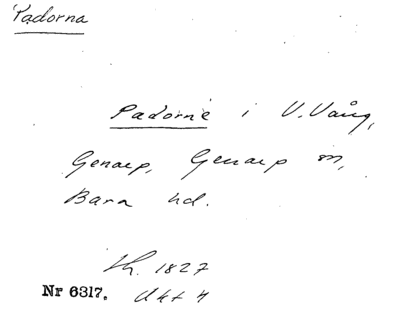 Padorna
Padorne i V. Vång,
Genarp, Genarp sn,
Bara hd.
Lh. 1827
Nr 6317. Akt 4